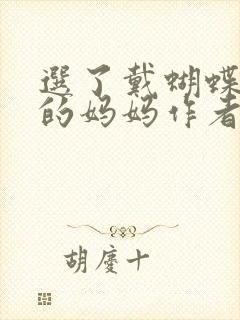 選了戴蝴蝶
的妈妈作者
胡慶十